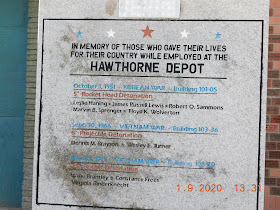 IN MEMORY OF THOSE WHO GAVE THEIR LIVES
FOR THEIR COUNTRY WHILE EMPLOYED AT THE
HAWTHORNE DEPOT
October 3, 1951 - KOREAN WAR - Building 101-05
5" Rocket Head Detonation
Leslie Haning • James Russell Lewis • Robert O. Sammons
Marvin B. Sprenger • Floyd K. Wolverton
1966 - VIETNAM WAR - Building 103-36
Projectile Detonation
Dennis M. • Wesley E. Turner
VIETNAM WAR - Building
Detonation
Brantley • Constance Frees
Virginia
1.9.2020 13:31